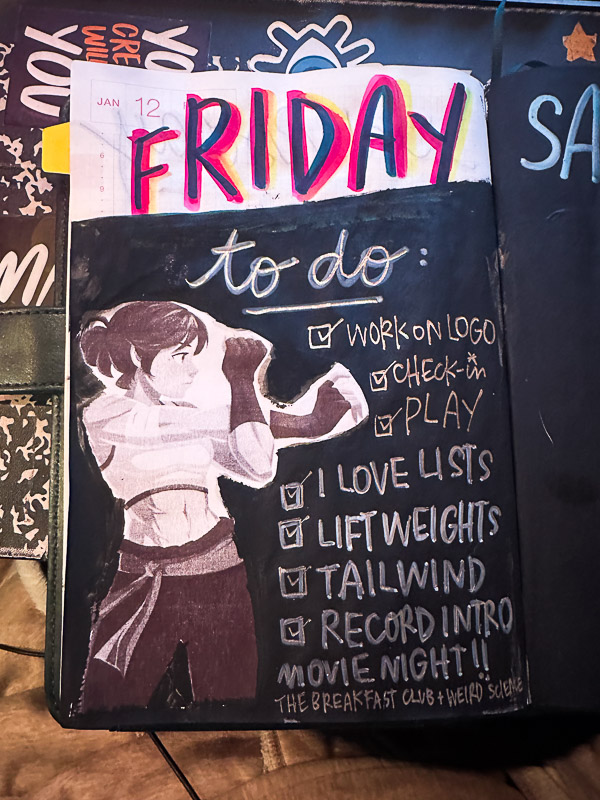 YOU
CRE
WILL
YOU
JAN 12
6
FRIDAY
SA
to do:
WORK ON LOGO
CHECK-in
PLAY
I LOVE LISTS
LIFT WEIGHTS
TAILWIND
RECORD INTRO
MOVIE NIGHT!!
THE BREAKFAST CLUB + WEIRD SCIENCE